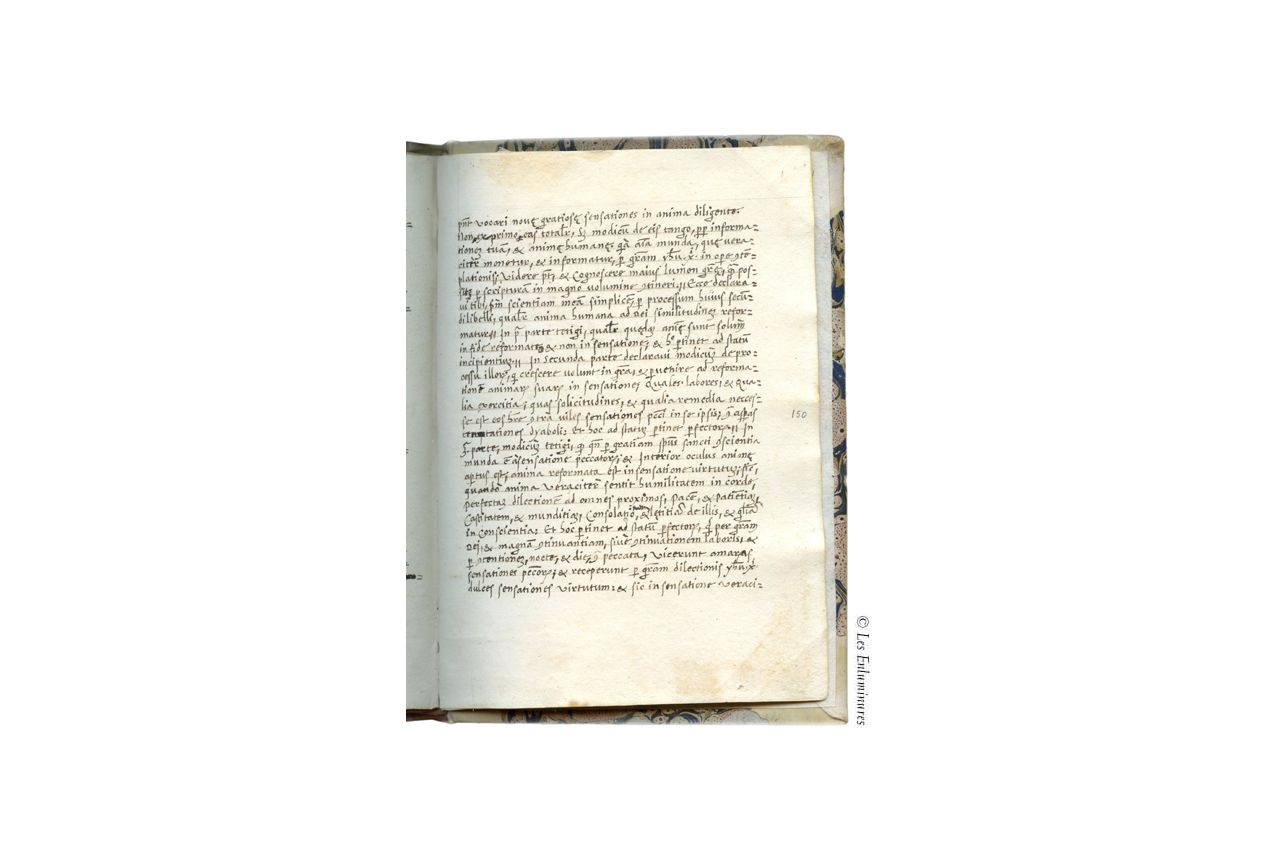 pñt vocari nouę gratiosę sensationes in anima diligente.
Non exprimo eas totalr̃, s; modicũ de eis tango, pp̃ informa-
tionẽ tuam, & animę humanę; q̃a aĩa munda, quę vera-
citer monetur, & informatur, p grãm yhũ. x̃. in ope ꝯtẽ-
plationis, Videre pt̃, & Cognoscere maius lumen grę,
p scripturam in magno volumine Ecce declara-
ui tibi, scientiam meam simplicẽ, p processum huius secũ-
di libelli, qualr̃ anima humana ad Dei similitudinẽ refor-
matur, In p̃ parte tetigi, qualr̃ quędã anię sunt solum
in fide reformatę, & non in sensatione, & h° ptinet ad statũ
incipientium, In Secunda parte declaraui modicum de pro-
cessu illorꝫ, q̃ crescere volunt in grã, & puenire ad reforma-
tionẽ animarꝫ suarꝫ in sensatione, Quales labores, & Qua-
lia exercitia, quas solicitudines, & qualia remedia necces-
se est eos hr̃e ꝯtra viles sensationes pccĩ in se ipsis,
temptationes Dyaboli: Et hoc ad statum ptinet pfectorꝫ In
parte, modicum tetigi, qñ p gratiam spũs sancti ꝯscientia
munda ẽ a sensatione peccatorꝫ, & Interior oculus animę
aptus est, anima reformata est in sensatione virtutum, sic,
quando anima veraciter sentit humilitatem in corde,
perfectam dilectionẽ ad omnes proximos, pacẽ, & patientiã,
Castitatem, & munditiã, Consolationem, & lętitiã de illis, & glĩa
in Conscientia: Et hoc ptinet ad statũ pfectorꝫ, q̃ per grãm
Dei, & magnam ꝯtinuantiam, siue ꝯtinuationem laboris, &
p ꝯtentionem, nocte, & die, ꝯ peccata, vicerunt amaras
sensationes pccorꝫ, & receperunt p grãm dilectionis yhũ. x̃.
dulces sensationes virtutum: & sic in sensatione veraci-
150
© Les Enluminures